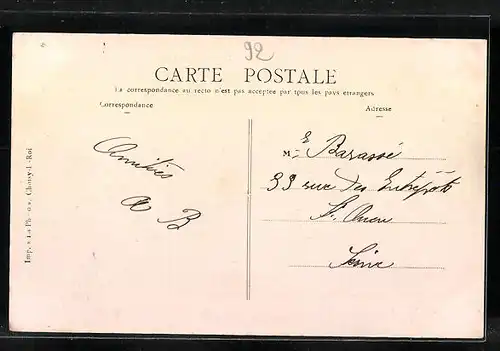 92
CARTE POSTALE
La correspondance au recto n'est pas acceptee par tous les pays etrangers
Correspondance
Adresse
Amitiés
A B
M E Barassé
33 rue des Entrepôts
St. Ouen
Seine
Choisy-l-Roi